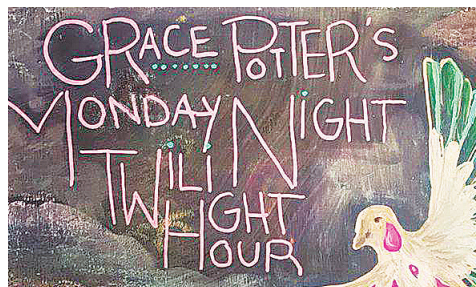 GRACE POTTER'S
MONDAY NIGHT
TWILIGHT
HOUR